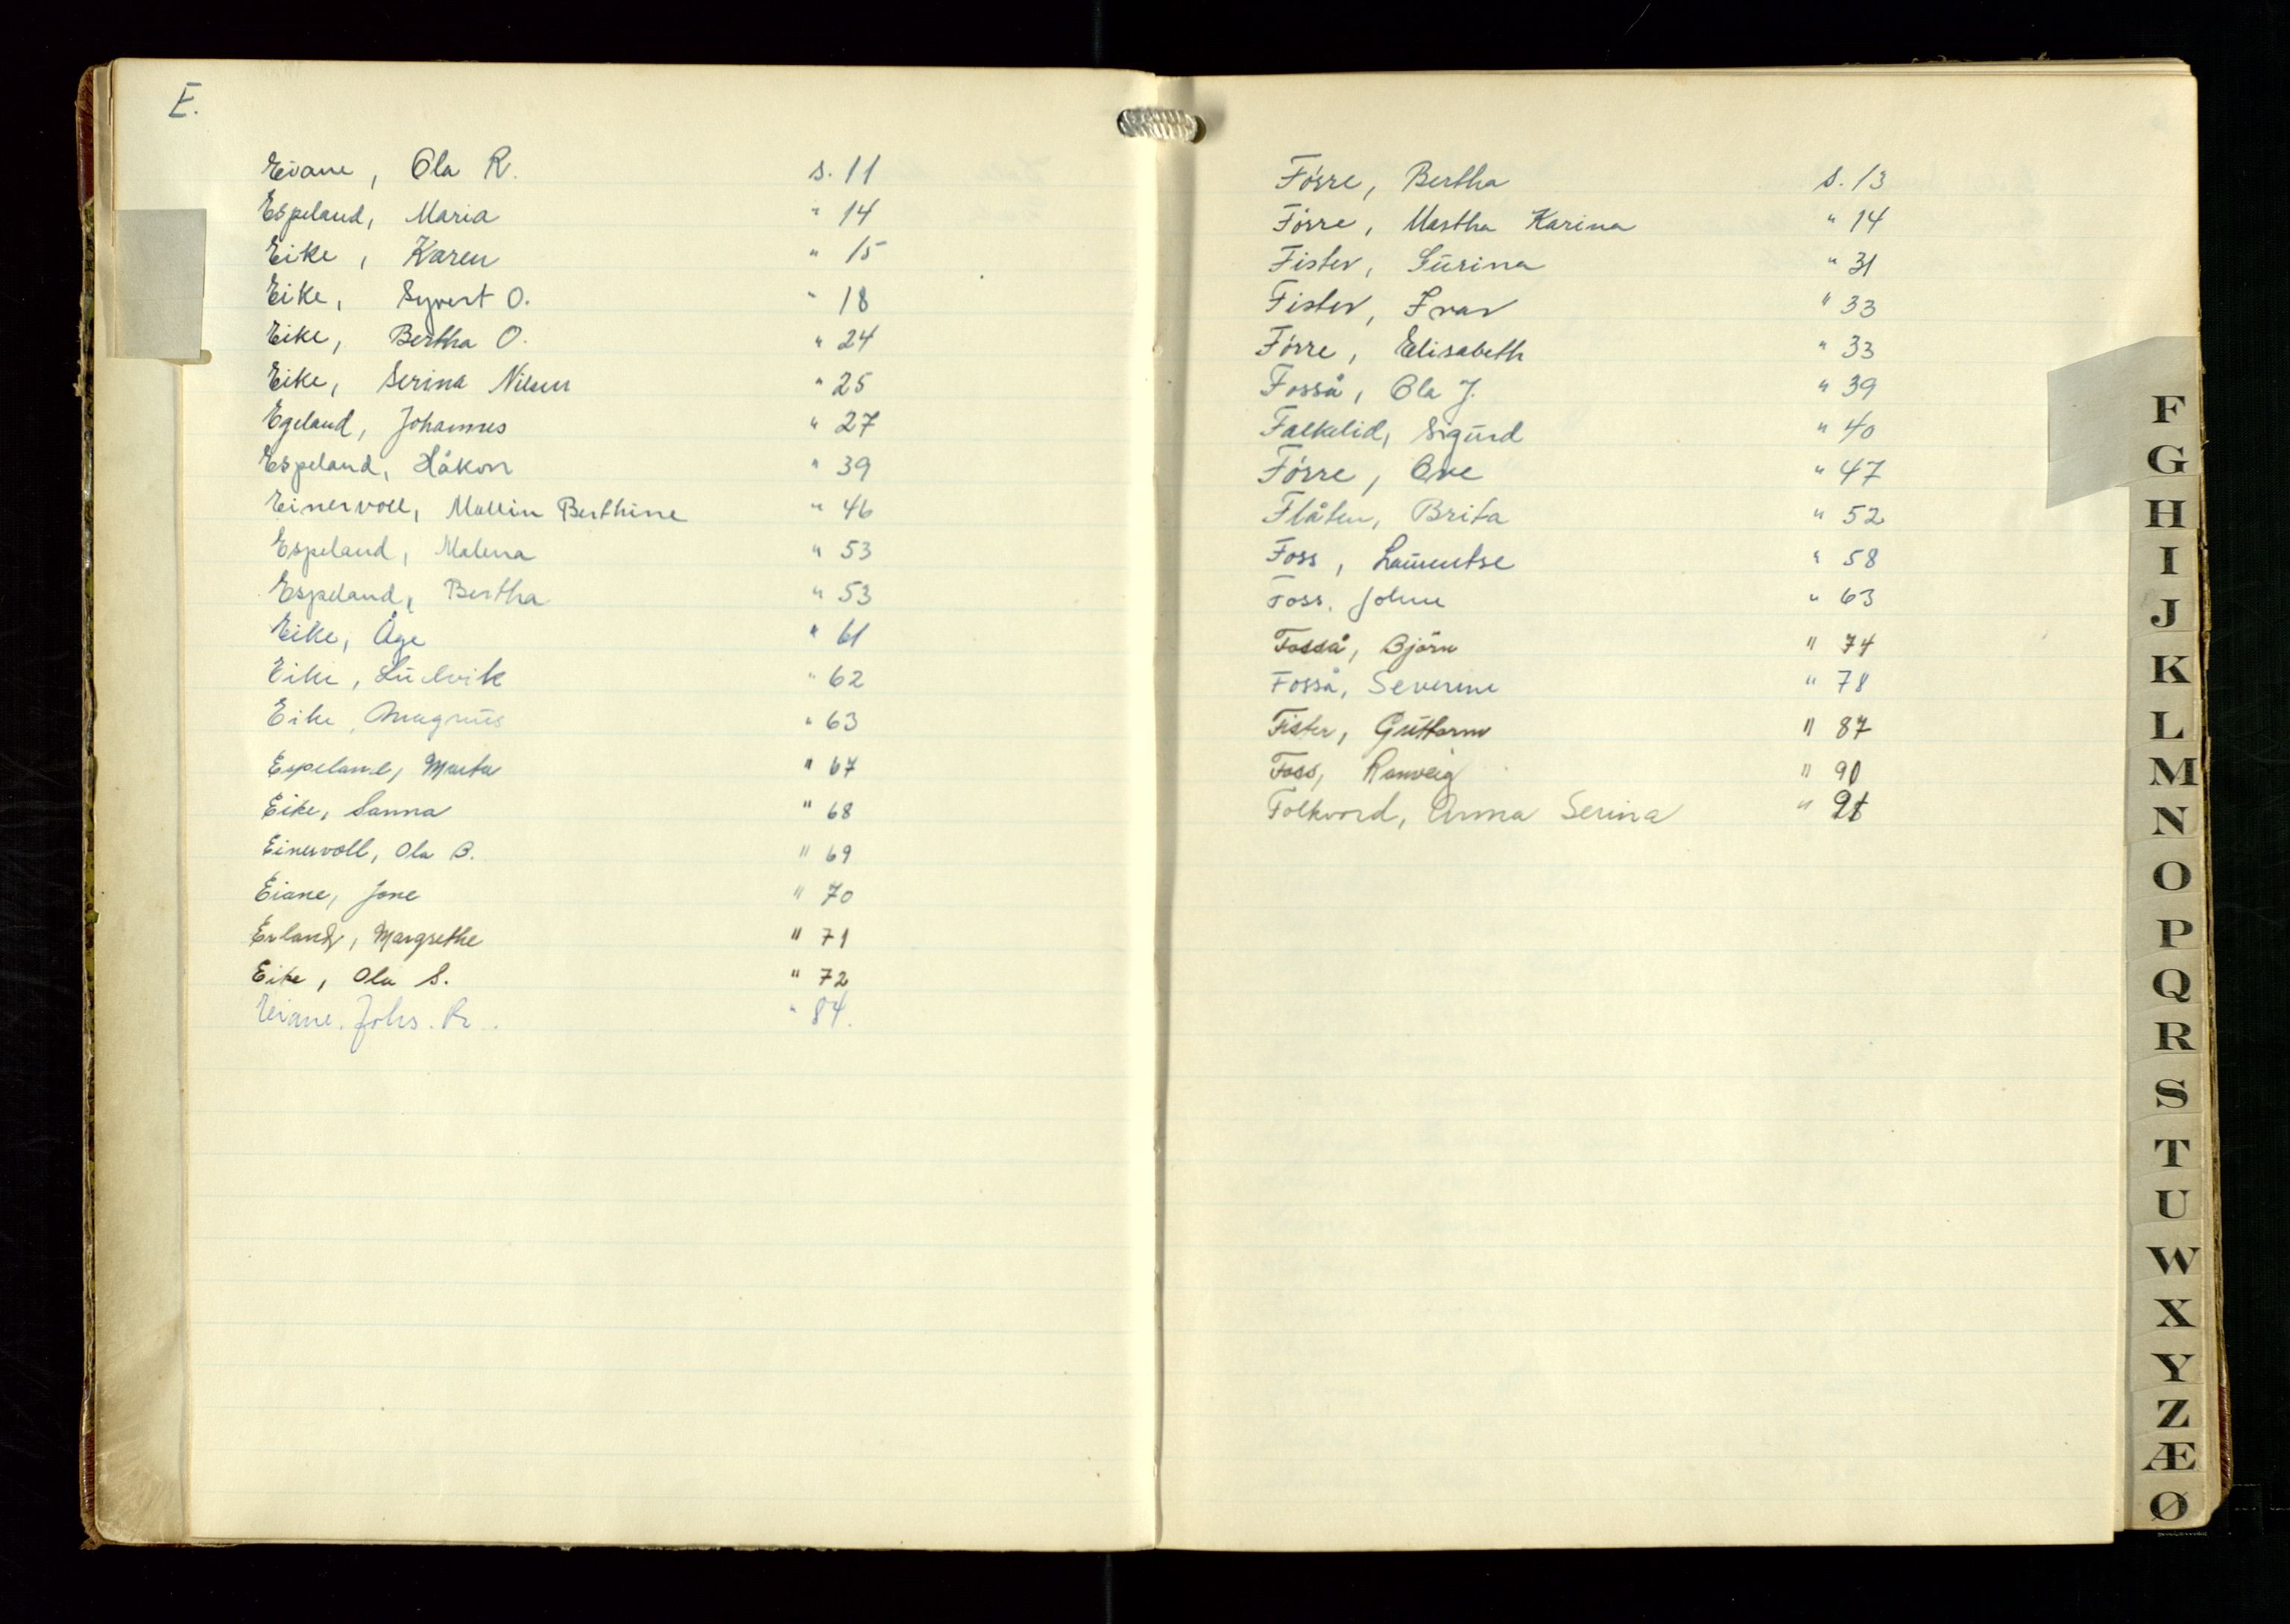 E.
Eiane, Ola R. s. 11
Espeland, Maria " 14
Eike, Karen " 15
Eike, Syvert O. " 18
Eike, Bertha O. " 24
Eike, Serina Nilsen " 25
Egeland, Johannes " 27
Espeland, Håkon " 39
Einervoll, Mallin Berthine " 46
Espeland, Malena " 53
Espeland, Bertha " 53
Eike, Åge " 61
Eike, Ludvik " 62
Eike, Magnus " 63
Espeland, Marta " 67
Eike, Sanna " 68
Einervoll, Ola B. " 69
Eiane, Jone " 70
Erland, Margrethe " 71
Eike, Ola S. " 72
Eiane. Johs. R. " 84.
Förre, Bertha s. 13
Förre, Martha Karina " 14
Fister, Gurina " 31
Fister, Ivar " 33
Förre, Elisabeth " 33
Fosså, Ola J. " 39
Falkelid, Sigurd " 40
Förre, Ove " 47
Flåten, Brita " 52
Foss, Lauentse " 58
Foss. Johne " 63
Fosså, Björn " 74
Fosså, Severine " 78
Fister, Guttorm " 87
Foss, Ranveig " 90
Folkvord, Anna Serina "
F
G
H
I
J
K
L
M
N
O
P
Q
R
S
T
U
W
X
Y
Z
Æ
Ø